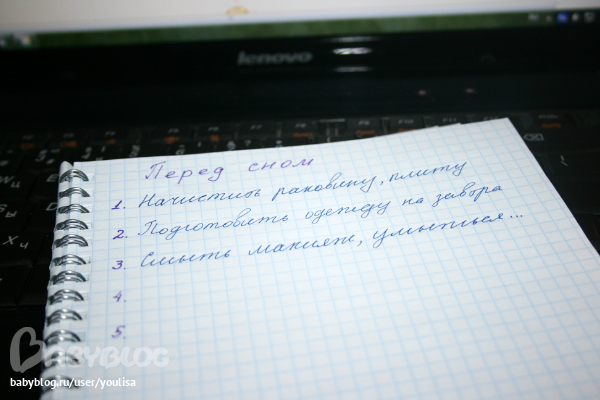 lenovo
Перед сном
1. Начистить раковину, плиту
2. Подготовить одежду на завтра
3. Смыть макияж, умыться...
4.
5.
BABYBLOG
babyblog.ru/user/youlisa